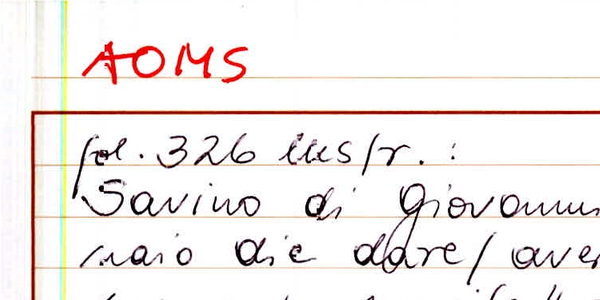 AOMS
fol. 326 lks/r. :
Savino di Giovanni
naio die dare/aver